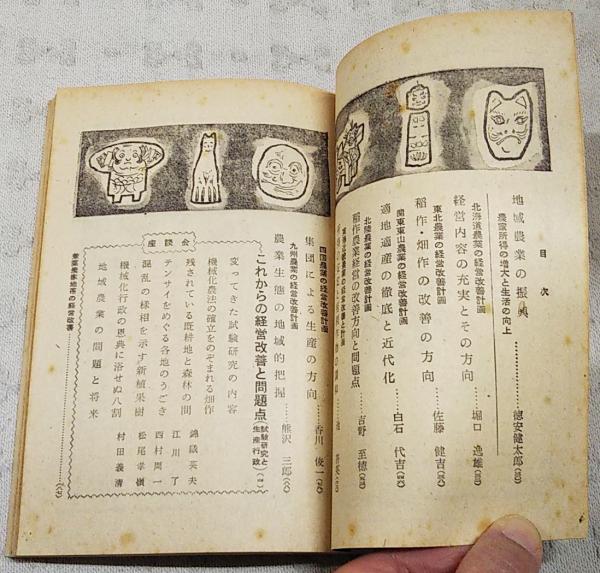 目次
地域農業の振興
農家所得の増大と生活の向上
徳安健太郎
北海道農業の経営改善計画
経営内容の充実とその方向
堀口逸雄
東北農業の経営改善計画
稲作・畑作の改善の方向
佐藤健吉
関東東山農業の経営改善計画
適地適産の徹底と近代化
白石代吉
北陸農業の経営改善計画
稲作農業経営の改善方向と問題点
吉野至徳
四国農業の経営改善計画
集団による生産の方向
香川俊一
九州農業の経営改善計画
農業生態の地域的把握
熊沢三郎
座談会
これからの経営改善と問題点
試験研究と
生産行政
変ってきた試験研究の内容
機械化農法の確立をのぞまれる畑作
残されている既耕地と森林の間
テンサイをめぐる各地のうごき
混乱の様相を示す新植果樹
機械化行政の恩典に浴せぬ八割
地域農業の問題と将来
錦織英夫
江川了
西村周一
松尾孝嶺
村田義清